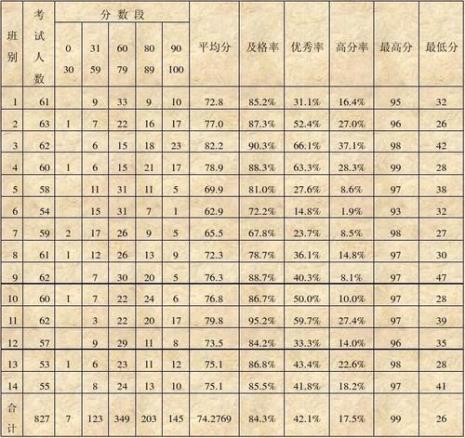 班别 考试人数 分数段 平均分 及格率 优秀率 高分率 最高分 最低分
0 30 31 59 60 79 80 89 90 100
1 61 9 33 9 10 72.8 85.2% 31.1% 16.4% 95 32
2 63 1 7 22 16 17 77.0 87.3% 52.4% 27.0% 96 26
3 62 6 15 18 23 82.2 90.3% 66.1% 37.1% 98 42
4 60 1 6 15 21 17 78.9 88.3% 63.3% 28.3% 99 28
5 58 11 31 11 5 69.9 81.0% 27.6% 8.6% 97 38
6 54 15 31 7 1 62.9 72.2% 14.8% 1.9% 93 32
7 59 2 17 26 9 5 65.5 67.8% 23.7% 8.5% 98 27
8 61 1 12 26 13 9 72.3 78.7% 36.1% 14.8% 97 30
9 62 7 30 20 5 76.3 88.7% 40.3% 8.1% 97 47
10 60 1 7 22 24 6 76.8 86.7% 50.0% 10.0% 97 28
11 62 3 22 20 17 79.8 95.2% 59.7% 27.4% 97 39
12 57 9 29 11 8 73.5 84.2% 33.3% 14.0% 96 35
13 53 1 6 23 11 12 75.1 86.8% 43.4% 22.6% 98 28
14 55 8 24 13 10 75.1 85.5% 41.8% 18.2% 97 41
合计 827 7 123 349 203 145 74.2769 84.3% 42.1% 17.5% 99 26